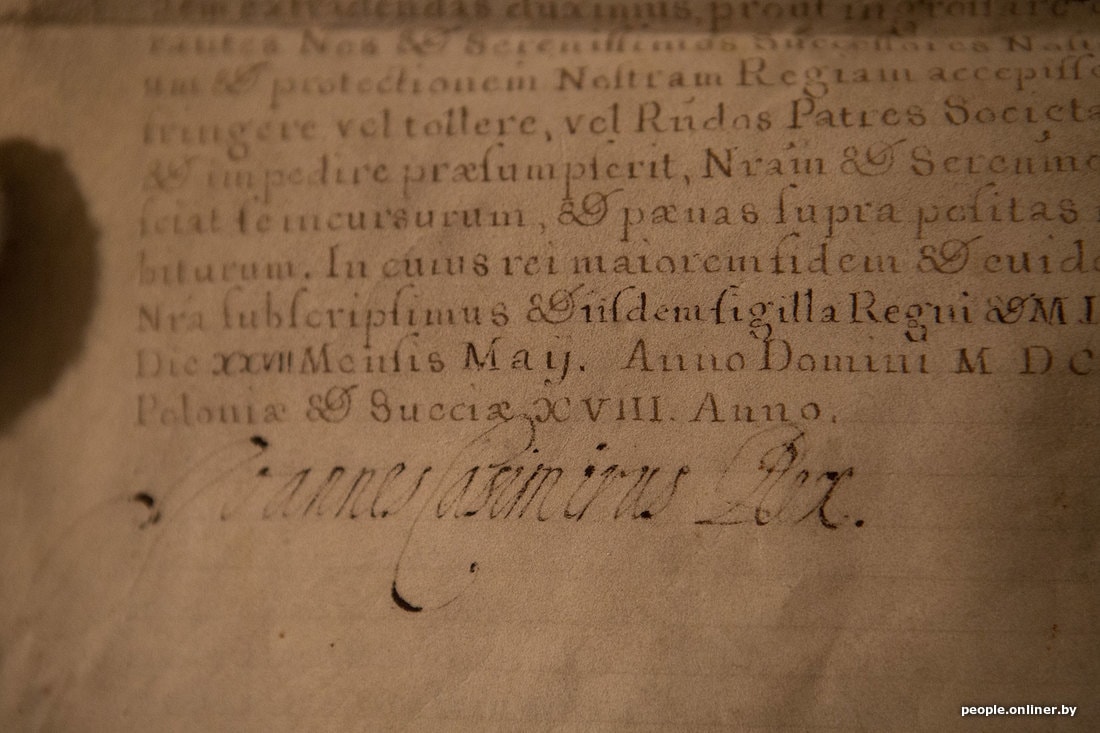 dem extradendas duximus, prout in
rantes Nos & Serenissimos Successores Nost
um & protectionem Nostram Regiam accepisse
fringere vel tollere, vel Rñdos Patres Societa
& impedire præsumpserit, Nram & Serenmo
sciat se incursurum, & pænas supra positas
biturum. In cuius rei maiorem fidem & euide
Nra subscripsimus & iisdem sigilla Regni & M
Die XXVII Mensis May. Anno Domini M DC
Poloniæ & Sueciæ XVIII. Anno.
Joannes Casimirus Rex.
people.onliner.by